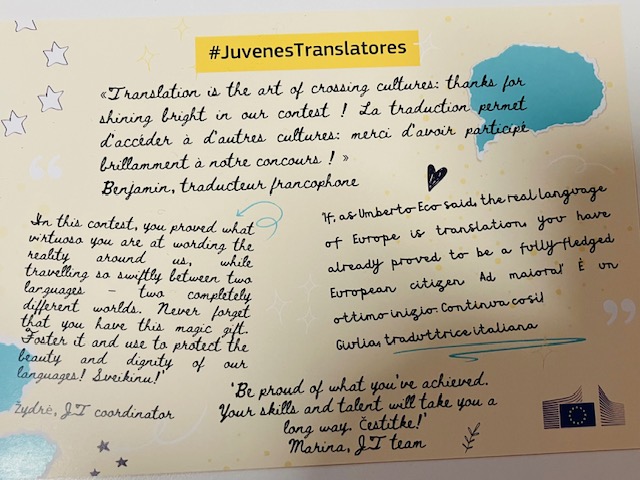 #JuvenesTranslatores
«Translation is the art of crossing cultures: thanks for
shining bright in our contest ! La traduction permet
d'accéder à d'autres cultures: merci d'avoir participé
brillamment à notre concours ! »
Benjamin, traducteur francophone
In this contest, you proved what
virtuoso you are at wording the
reality around us, while
travelling so swiftly between two
languages – two completely
different worlds. Never forget
that you have this magic gift.
Foster it and use to protect the
beauty and dignity of our
languages! Sveikinu!'
Žydrė, JT coordinator
'If, as Umberto Eco said, the real language
of Europe is translation, you have
already proved to be a fully-fledged
European citizen. Ad maiora!' È un
ottimo inizio. Continua così!
Giulia, traduttrice italiana
'Be proud of what you've achieved.
Your skills and talent will take you a
long way. Čestitke!'
Marina, JT team